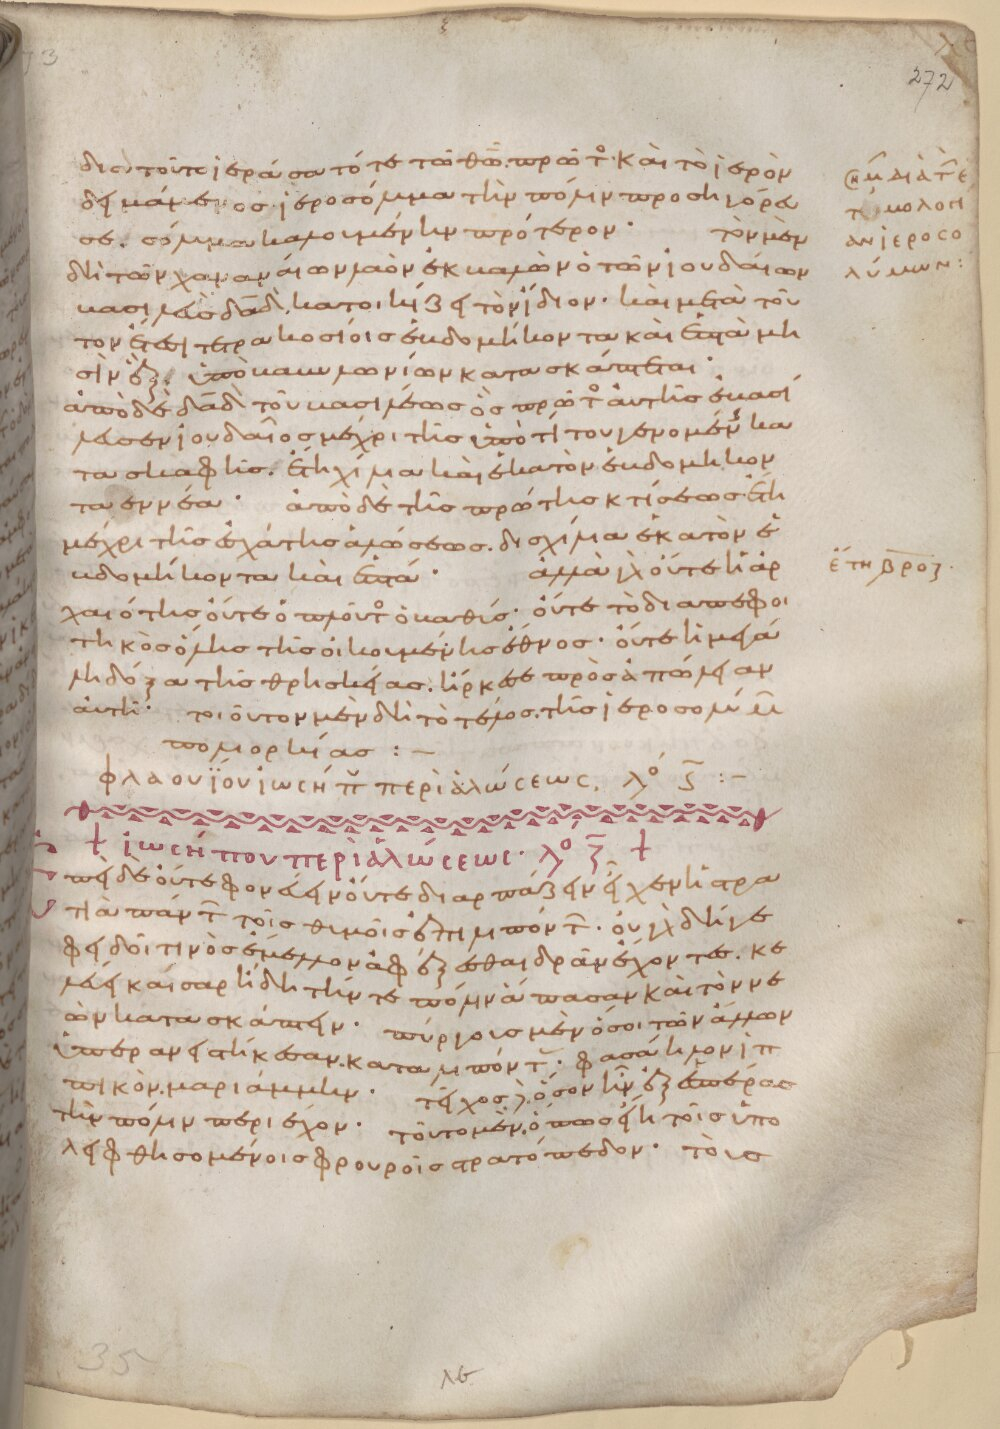 διὰ τοῦτο ἱεράσατό τε τῶ θῶ πρῶτ· καὶ τὸ ἱερὸν
δειμάμενος ἱεροσόλυμα τὴν πόλιν προσηγόρευ
σε. σόλυμα καλουμένην πρότερον· τὸν μὲν
δὴ τῶν χαναναίων λαὸν ἐκβαλὼν ὁ τῶν ἰουδαίων
βασιλεὺς δᾱδ κατοικίζει τὸν ἴδιον· καὶ μετὰ τοῦ
τον ἔτεσι τετρακοσίοις ἑβδομήκοντα καὶ ἑπτὰ μη
σὶν ἓξ. ὑπὸ βαβυλωνίων κατασκάπτεται·
ἀπὸ δὲ δᾱδ τοῦ βασιλέως ὃς πρῶτ αὐτῆς ἐβασί
λευσεν ἰουδαῖος μέχρι τῆς ὑπὸ τίτου γενομένης κα
τασκαφῆς. ἔτη χίλια καὶ ἑκατὸν ἑβδομήκον
ταεννέα· ἀπὸ δὲ τῆς πρώτης κτίσεως ἔτη
μέχρι τῆς ἐσχάτης ἁλώσεως. δισχίλια ἑκατὸν ἑ
βδομήκοντα καὶ ἑπτά· ἀλλὰ γὰρ οὔτε ἡ ἀρ
χαιότης οὔτε ὁ πλοῦτ ὁ βαθύς· οὔτε τὸ διαπεφοι
τηκὸς ὅλης τῆς οἰκουμένης ἔθνος· οὔτε ἡ μεγά
λη δόξα τῆς θρησκείας. ἤρκεσε πρὸς ἀπώλειαν
αὐτῆ· τοιοῦτον μὲν δὴ τὸ τέλος. τῆς ἱεροσολύμ
πολιορκίας :–
φλαουΐου ἰωσήπ περὶ ἁλώσεως. λό ς̄ :–
+ ἰωσήπου περὶ ἁλώσεως. λό ζ̄ +
πεὶ δὲ οὔτε φονεύειν οὔτε διαρπάζειν εἶχεν ἡ στρα
τιὰ πάντ τοῖς θυμοῖς ἐπιλιπόντ· οὐ γὰρ δή γε
φειδοῖ τινὸς ἔμελλον ἀφέξεσθαι δρᾶν ἔχοντες. κε
λεύει καῖσαρ ἤδη τήν τε πόλιν ἅπασαν καὶ τὸν νε
ὼν κατασκάπτειν· πύργους μὲν ὅσοι τῶν ἄλλων
ὑπερανειστήκεσαν. καταλιπόντ· φασάηλον ἱπ
πικὸν. μαριάμμην· τεῖχος δ' ὅσον ἦν ἐξ ἑσπέρας
τὴν πόλιν περιέχον· τοῦτο μὲν. ὅπως εἴη τοῖς ὑπο
λειφθησομένοις φρουροῖς στρατόπεδον· τοὺς
ἔτη ͵βροζ·
272
35
λε